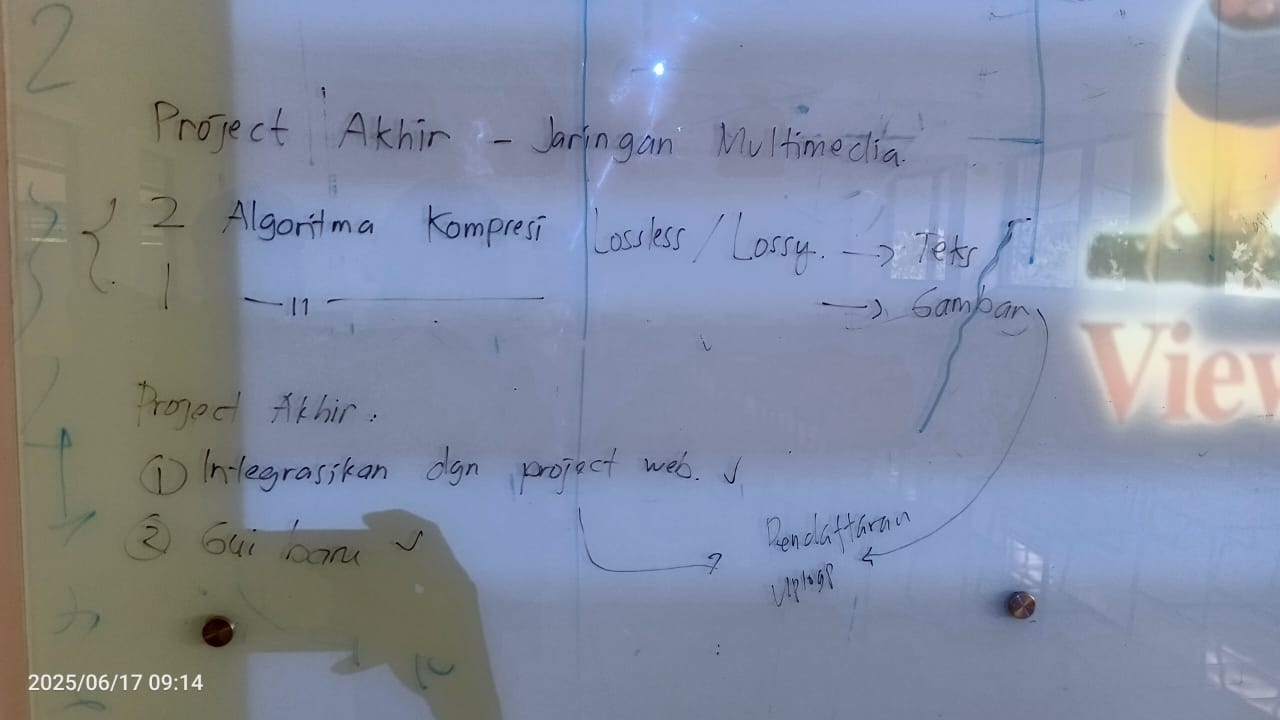 2
Project Akhir - Jaringan Multimedia.
2 Algoritma Kompresi Lossless / Lossy. → Teks
1 —〃— → Gambar
Project Akhir :
① Integrasikan dgn project web. ✓
② Gui baru ✓
Pendaftaran
View
2025/06/17 09:14